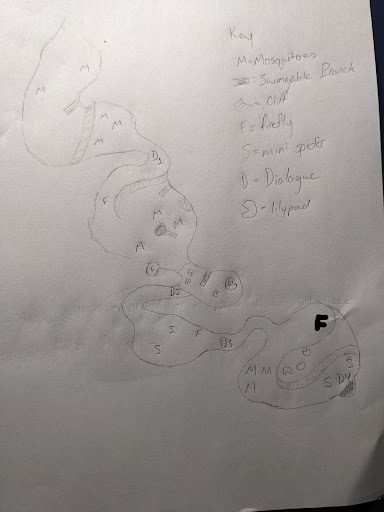 Key
M=Mosquitoes
= Swingable Branch
= Cliff
F = firefly
S = mini spider
D = Dialogue
= lilypad
M
M
M
M
M
D1
F
M
M
M
F
D2
S
F
S
D3
F
M M
M
S
S D4